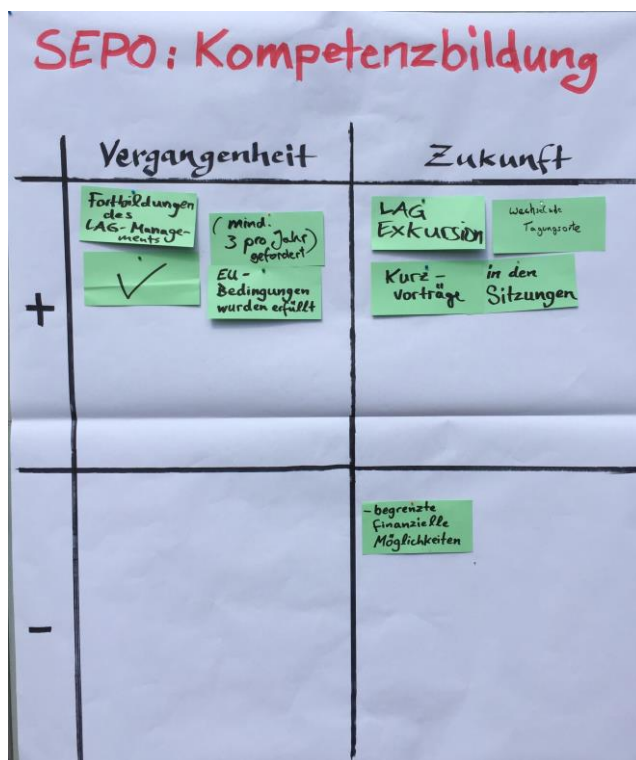 SEPO: Kompetenzbildung
Vergangenheit
Zukunft
+
Fortbildungen
des
LAG-Manage-
ments
✓
(mind.
3 pro Jahr)
gefordert
EU-
Bedingungen
wurden erfüllt
LAG
Exkursion
Tagungsorte
Kurz-
vorträge
in den
Sitzungen
-
-begrenzte
finanzielle
Möglichkeiten